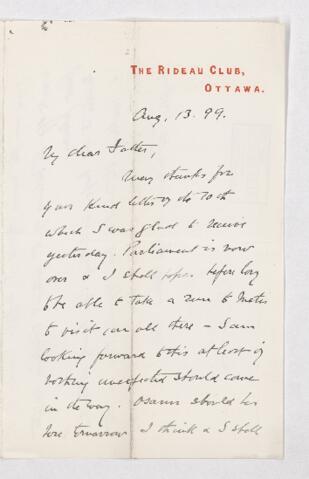 THE RIDEAU CLUB,
OTTAWA.
Aug. 13. 99.
My dear Father,
Many thanks for
your kind letter of the 10th
which I was glad to receive
yesterday. Parliament is now
over & I shall hope before long
to be able to take a run to Metis
to visit you all there – I am
looking forward to this at least if
nothing unexpected should come
in the way. Osann should be
here tomorrow I think & I shall